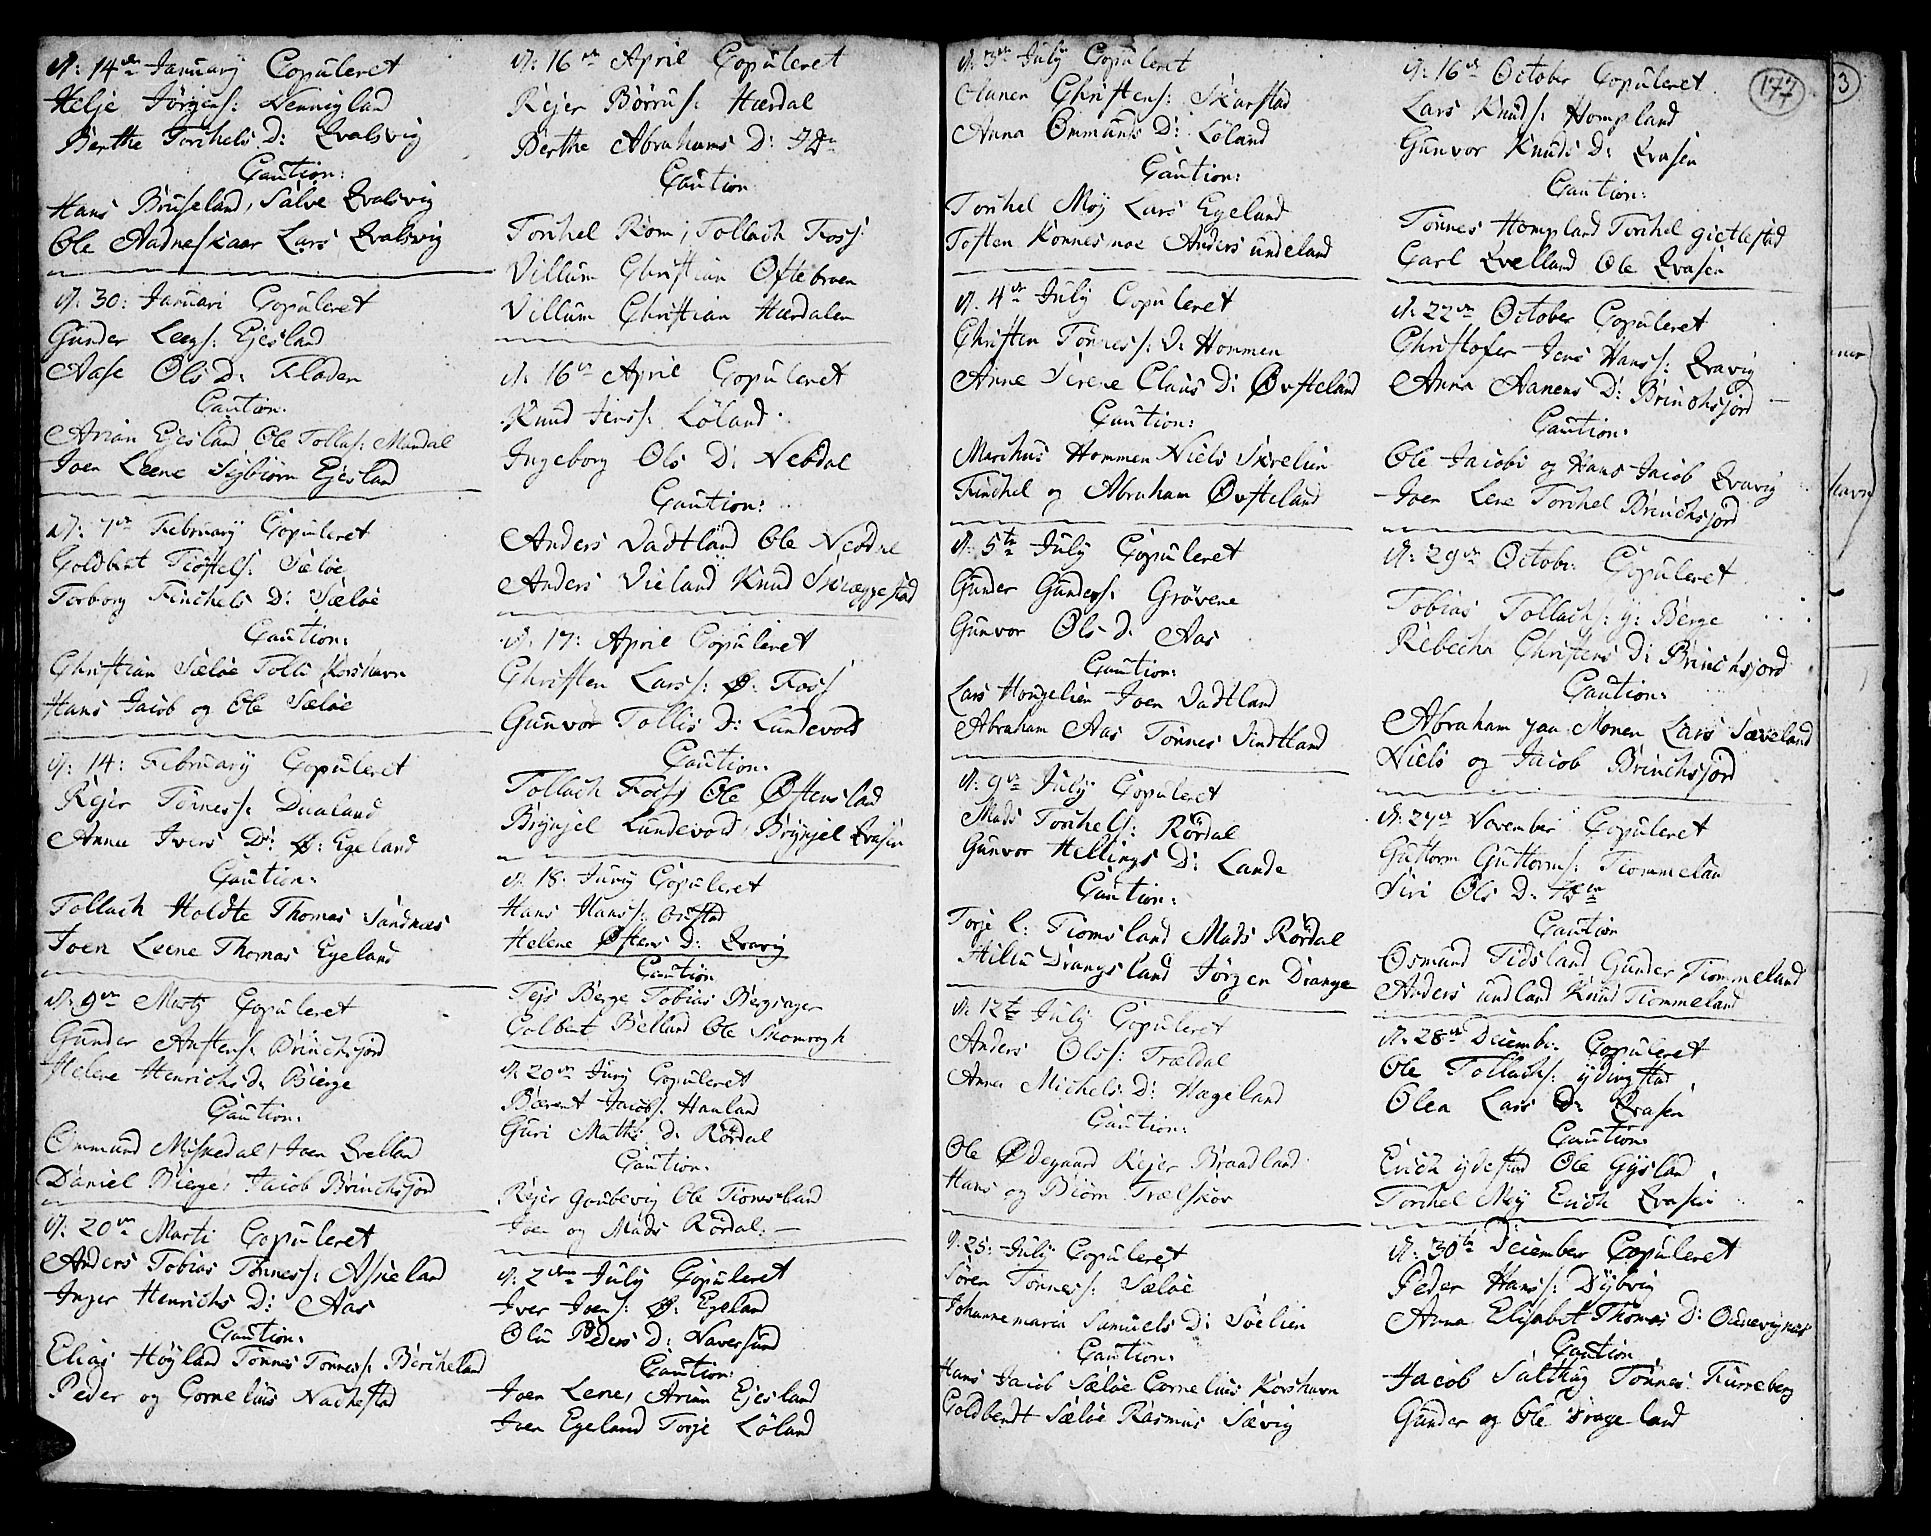 d: 14de January Copuleret
Helje Jörgens: Nennigland
Berthe Torchels D: Qvalsvig
Caution:
Hans Bruseland, Salve Qvalsvig
Ole Aadneskaar Lars Qvalsvig
d: 30: Januari Copuleret
Gunder Leegs: Ejesland
Aase Ols D: Fladen
Caution:
Arian Ejesland Ole Tollafs: Mandal
Joen Leene Sigbiörn Ejesland
d: 7de February Copuleret
Goldbert Tiöstels: Sæløe
Torborg Finchels D: Sæløe
Caution:
Christian Sæløe Tolli Korshavn
Hans Jacob og Ole Sæløe
d: 14: February Copuleret
Rejer Tönness: Dualand
Anne Ivers D: Ø: Egeland
Caution:
Tollach Holdte Thomas Sandnæs
Joen Leene Thomas Egeland
d: 9de Marty Copuleret
Gunder Anstens: Brinchsjord
Helene Henrichs D: Bierge
Caution:
Ommund Miskedal, Joen Qvelland
Daniel Bierge, Jacob Brinchsjord
d: 20de Marti Copuleret
Anders Tobias Tönness: Askeland
Inger Henrichs D: Aas
Caution:
Elias Höyland Tönnes Tönness: Bercheland
Peder og Cornelius Nachestad
d: 16de April Copuleret
Rejer Börrus: Hærdal
Berthe Abrahams D: Ide
Caution
Torchel Rom, Tollach Foss
Villum Christian Oftebroen
Villum Christian Hærdalen
d: 16de April Copuleret
Knud Jenss: Löland
Ingeborg Ols D: Nebdal
Caution:
Anders Vadtland Ole Nebdal
Anders Vieland Knud Skræggestad
d: 17: April Copuleret
Christen Larss: Ø: Foss
Gunvor Tollis D: Lundevold
Caution:
Tollach Foss, Ole Øftensland
Brynjel Lundevold, Brynjel Qvasen
d: 18: Juny Copuleret
Hans Hanss: Orstad
Helene Østens D: Qvavig
Caution
Tejs Berge Tobias Bergsager
Colbent Belland Ole Skomragh
d: 20de Juny Copuleret
Bærent Jacobs: Hauland
Guri Maths D: Rördal
Caution:
Rejer Goubevig Ole Tiomesland
Joen og Mads Rördal:
d: 2den July Copuleret
Iver Joens: Ø: Egeland
Oliu Peders D: Naversund
Caution:
Joen Lene, Arian Ejesland
Joen Egeland Torje Löland
d: 3de July Copuleret
Olunen Christens: Skarstad
Anna Ommunds D: Löland
Caution:
Torchel Moy Lars Egeland
Tosten Konnesmoe Anders undeland
d: 4de July Copuleret
Christen Tönness: D: Hommen
Anne Sirene Claus D: Øvsteland
Caution:
Marchus Hommen Niels Skrelien
Finchel og Abraham Øvsteland
d: 5te July Copuleret
Gunder Gunders: Grövene
Gunvor Ols D: Aas
Caution:
Lars Hougelien Joen Vadtland
Abraham Aas Tönnes Vindtland
d: 9de July Copuleret
Mads Torchels: Rördal
Gunvor Hellings D: Lande
Caution:
Torje L: Tiomsland Mads Rördal
Hilleu Drangsland Jörgen Drange
d: 12te July Copuleret
Anders Olss: Trældal
Anne Michels D: Hægeland
Caution:
Ole Ødegaard Rejer Braadland
Hans og Biörn Trælskov
d: 25: July Copuleret
Sören Tönness: Sæløe
Johannemaria Samuels D: Söelien
Caution:
Hans Jacob Sæløe Cornelius Korshavn
Goldbendt Sæløe Rasmus Sævig
d: 16de October Copuleret
Lars Knuds: Hompland
Gunvor Knuds D: Qvasen
Caution:
Tönnes Hompland Torchel gietlestad
Carl Qvelland Ole Qvasen
d: 22de October Copuleret
Christofer Jens Hanss: Qvavig
Anna Aanens D: Brinchsjord
Caution:
Ole Jacobs og Hans Jacob Qvavig
Joen Lene Torchel Brinchsjord
d: 29de Octobr: Copuleret
Tobias Tollachs: y: Berge
Rebecha Christens D: Brinchsjord
Caution:
Abraham paa Monen Lars Sæveland
Niels og Jacob Brinchsjord
d: 27de November Copuleret
Guttorm Guttorms: Tiommeland
Siri Ols D: Ibm
Caution
Osmund Tidsland Gunder Tiommeland
Anders undland Knud Tiommeland
d: 28de Decembr: Copuleret
Ole Tollachs: ydingstad
Olea Lars D: Qvasen
Caution:
Erich ydestad Ole Gysland
Torchel Moy Erich Qvasen
d: 30te December Copuleret
Peder Hanss: Dybvig
Anna Elisabet Thomas D: Oudnevignes
Caution
Jacob Salthug Tönnes Furreberg
Gunder og Ole Frageland
177
3
havn